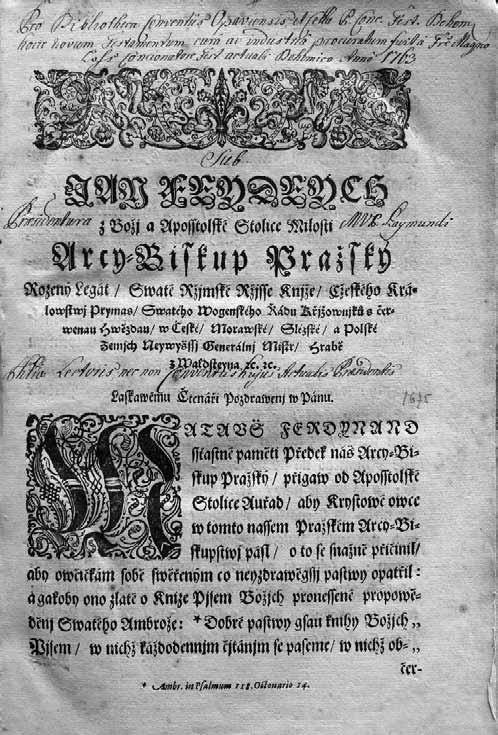 Pro Bibliotheca Conventus Opaviensis
hoc novum Testamentum cum ac industria procuratum fuit à Fr̄e Magno
Concionatore Fest. actuali Bohemico Anno 1763
Sub
JAN FRYDRYCH
Præsidentura
z Božj a Aposstolské Stolice Milosti
Arcy-Biskup Pražský
Rozený Legát / Swaté Ržjmské Ržjsse Knjže / Cžeského Krá-
lowstwj Prymas / Swatého Wogenského Ržádu Křjžownjků s čer-
wenau Hwězdau / w Cžeské / Morawské / Slézské / a Polské
Zemjch Neywyšssj Generálnj Mistr / Hrabě
z Waldsteyna ꝛc. ꝛc.
Lectoris nec non Conventus hujus Actualis Præsidentis
Laskawému Čtenáři Pozdrawenj w Pánu.
1675
WATAUŠ FERDYNAND
sstiastné paměti Předek náš Arcy-Bi-
skup Pražský / přigaw od Aposstolské
Stolice Auřad / aby Krystowé owce
w tomto nassem Pražském Arcy-Bi-
skupstwj pásl / o to se snažně přičinil /
aby owčičkám sobě swěřeným co neyzdrawěgssj pastwy opatřil :
a gakoby ono zlaté o Knize Pjsem Božjch pronessené propowě-
děnj Swatého Ambrože: * Dobré pastwy gsau knihy Božjch „
Pjsem / w nichž každodennjm čjtánjm se paseme / w nichž ob- „
čer-
* Ambr. in Psalmum 118. Octonario 14.